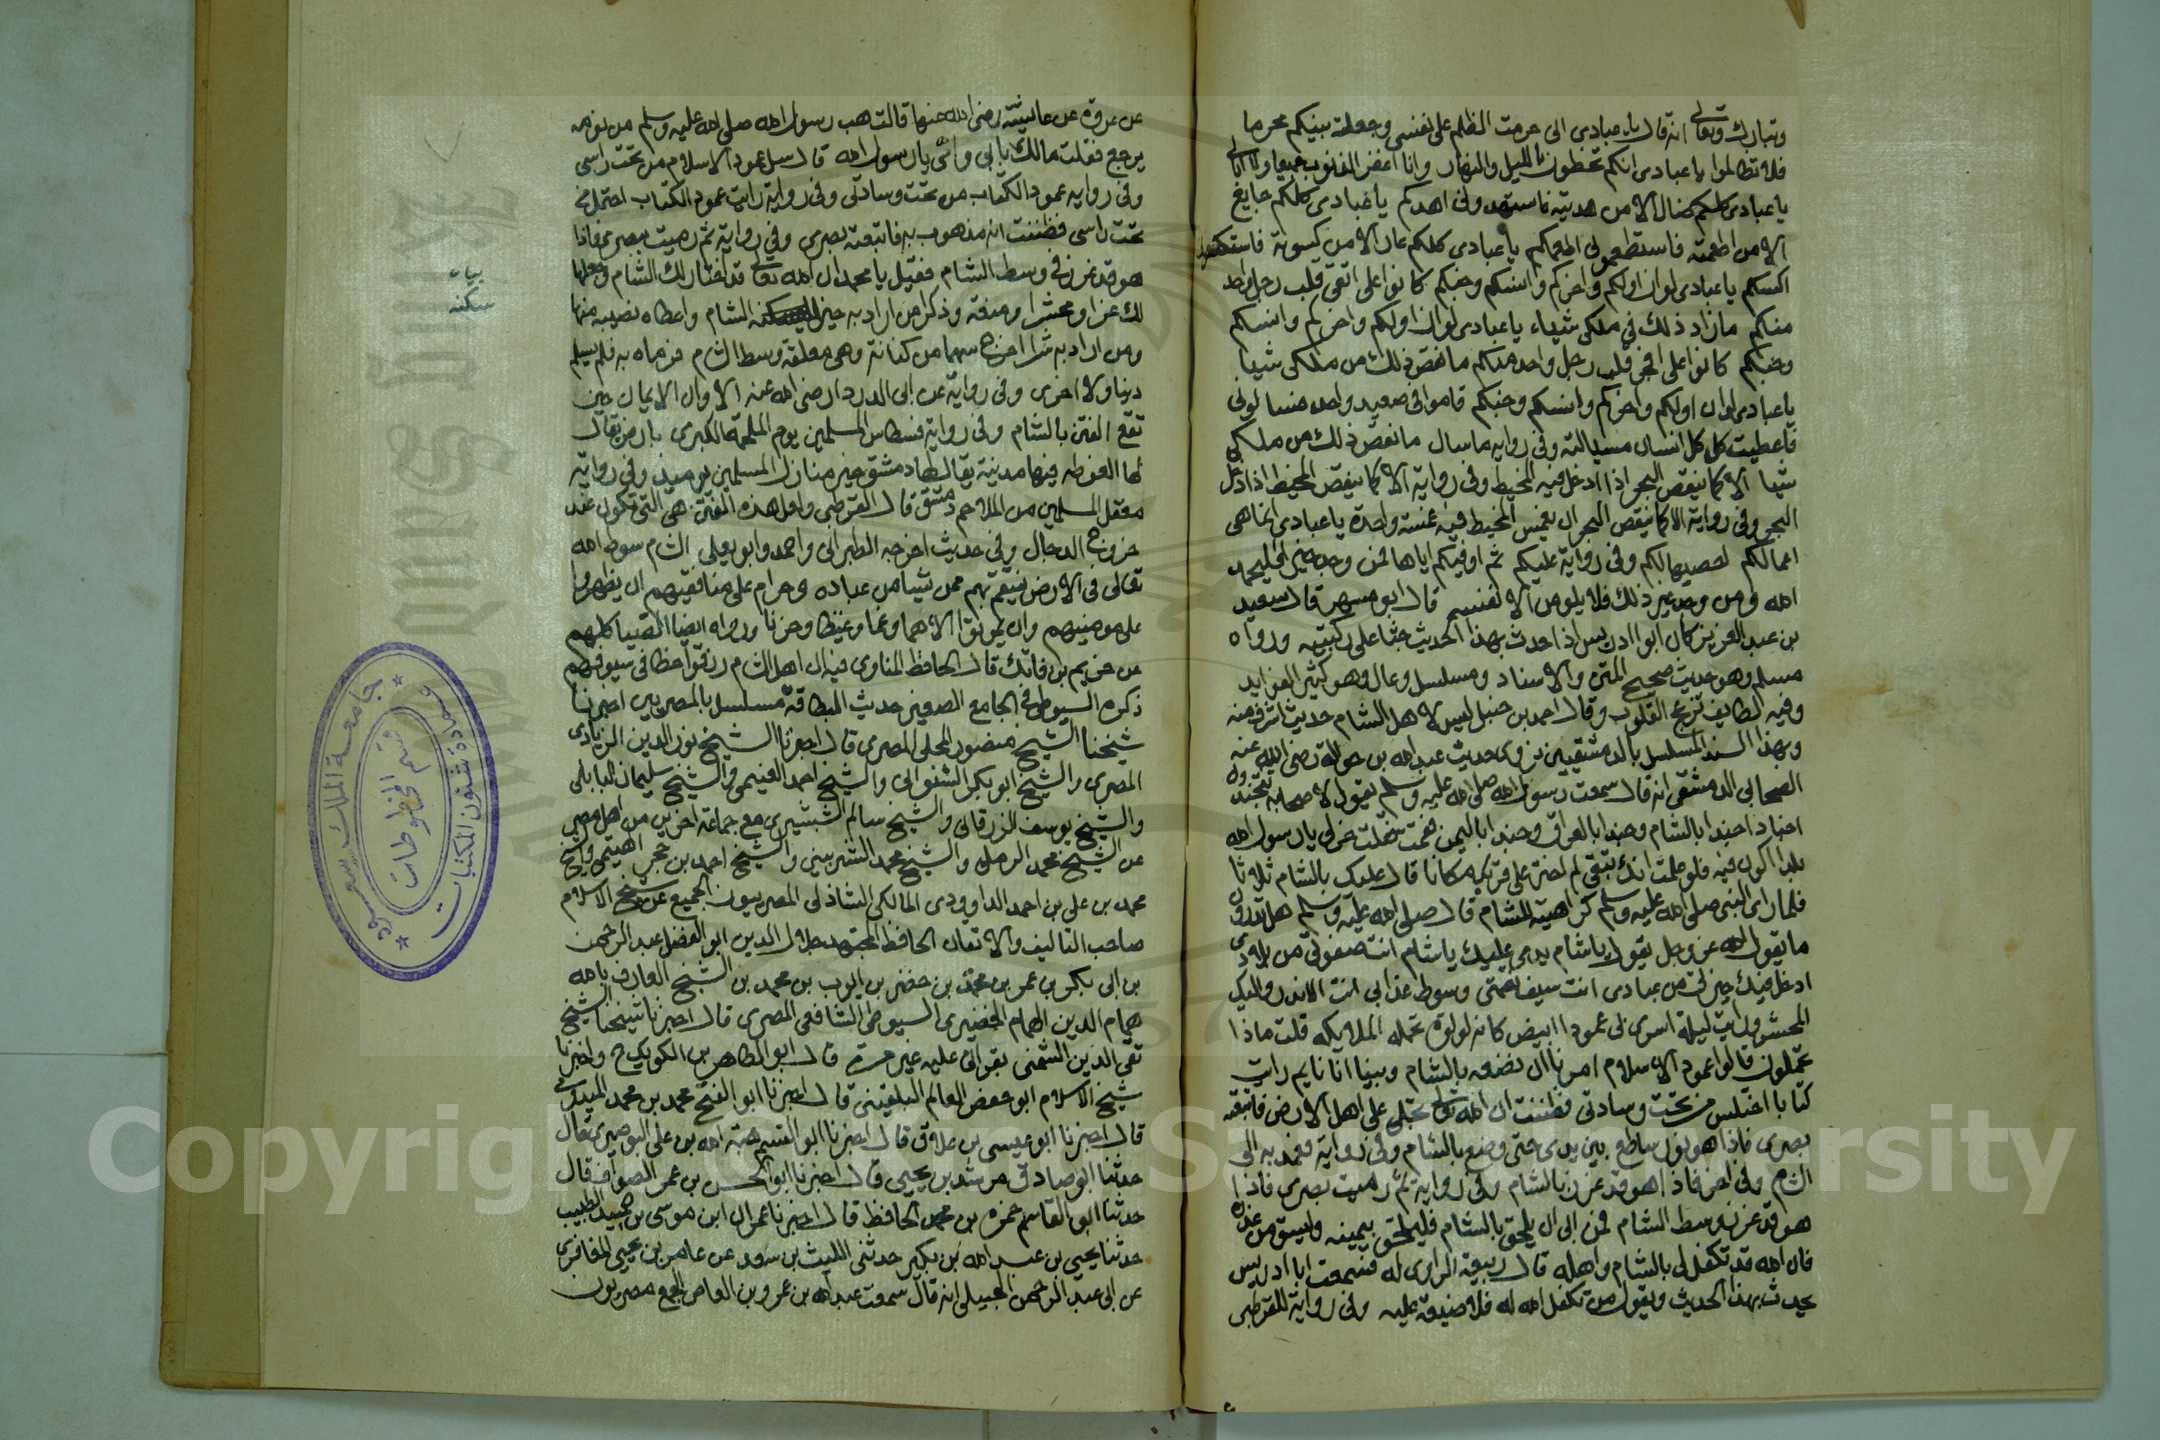 وتبارك وتعالى انه قال يا عبادي اني حرمت الظلم على نفسي وجعلته بينكم محرما
فلا تظالموا يا عبادي انكم تخطون بالليل والنهار وانا اغفر الذنوب جميعا ولا ابالي
يا عبادي كلكم ضال الا من هديته فاستهدوني اهدكم يا عبادي كلكم جايع
الا من اطعمته فاستطعموني اطعمكم يا عبادي كلكم عار الا من كسوته فاستكسوني
اكسكم يا عبادي لو ان اولكم واخركم وانسكم وجنكم كانوا على اتقى قلب رجل واحد
منكم ما زاد ذلك في ملكي شياء يا عبادي لو ان اولكم واخركم وانسكم
وجنكم كانوا على افجر قلب رجل واحد منكم ما نقص ذلك من ملكي شيا
يا عبادي لو ان اولكم واخركم وانسكم وجنكم قاموا في صعيد واحد فسالوني
فاعطيت كل كل انسان مسيالته وفي روايه ما سال ما نقص ذلك من ملكي
شيا الا كما ينقص البحر اذا ادخل فيه المخيط وفي رواية الا كما ينقص المخيط اذا دخل
البحر وفي رواية الا كما ينقص البحر ان يغمس المخيط فيه غمسة واحدة يا عبادي انما هي
اعمالكم احصيها لكم وفي رواية عليكم ثم اوفيكم اياها فمن وجد خيرا فليحمد
الله ومن وجد غير ذلك فلا يلومن الا نفسه قال ابو مسهر قال سعيد
بن عبد العزيز كان ابو ادريس اذا حدث بهذا الحديث جثا على ركبتيه ورواه
مسلم وهو حديث صحيح المتن والاسناد ومسلسل وعال وهو كثير الفوايد
وفيه لطايف تزعج القلوب وقال احمد بن حنبل ليس لاهل الشام حديث اشرف منه
وبهذا السند المسلسل بالدمشقيين نروي حديث عبد الله بن حوالة رضي الله عنه
الصحابي الدمشقي انه قال سمعت رسول الله صلى الله عليه وسلم يقول لاصحابه تتجندون
اجنادا جندا بالشام وجندا بالعراق وجندا باليمن فقمت فقلت خر لي يا رسول الله
بلدا اكون فيه فلو علمت انك تبقى لم اختر على قربك مكانا قال عليك بالشام ثلاثا
فلما راى النبي صلى الله عليه وسلم كراهيته للشام قال صلى الله عليه وسلم هل تدرون
ما يقول الله عز وجل يقول يا شام يدي عليك يا شام انت صفوتي من بلادي
ادخل فيك خيرتي من عبادي انت سيف نقمتي وسوط عذابي انت الاندر واليك
المحشر ورايت ليلة اسري بي عمودا ابيض كانه لولوة تحمله الملايكه قلت ماذا
تحملون قالوا عمود الاسلام امرنا ان نضعه بالشام وبينا انا نايم رايت
كتابا اختلس من تحت وسادتي فظننت ان الله تعالى تخلى على اهل الارض فاتبعته
بصري فاذا هو نور ساطع بين يدي حتى وضع بالشام وفي رواية فعمد به الى
الشام وفي اخر فاذا هو قد غرز بالشام وفي رواية ثم رميت بصري فاذا
هو قد غرز وسط الشام فمن ابى ان يلحق بالشام فليلحق بيمينه وليستق من غدره
فان الله قد تكفل لي بالشام واهله قال ربيعة الراوي له فسمعت ابا ادريس
يحدث بهذا الحديث ويقول من تكفل الله له فلا ضيعة عليه وفي رواية للقرطبي
عن عروة عن عايشة رضي الله عنها قالت هب رسول الله صلى الله عليه وسلم من نومه
يرجع فقلت مالك بابي وامي يا رسول الله قال سل عمود الاسلام من تحت راسي
وفي روايه عمود الكتاب من تحت وسادتي وفي رواية رايت عمود الكتاب احتمل من
تحت راسي فظننت انه مذهوب به فاتبعته بصري وفي رواية ثم رميت ببصري فاذا
هو قد غرز في وسط الشام فقيل يا محمد ان الله تعالى قد اختار لك الشام وجعلها
لك عزا ومحشرا ومنعة وذكرا من اراد به خيرا اسكنه الشام واعطاه نصيبه منها
ومن اراد به شرا اخرج سهما من كنانته وهي معلقة وسط الشام فرماه به فلم يسلم
دنيا ولا اخرى وفي رواية عن ابي الدرداء رضي الله عنه الا وان الايمان حين
تقع الفتن بالشام وفي رواية فسطاس المسلمين يوم الملحمة الكبرى بارض يقال
لها الغوطه فيها مدينة يقال لها دمشق خير منازل المسلمين يوميذ وفي رواية
معقل المسلمين من الملاحم دمشق قال القرطبي واول هذه الفتن هي التي تكون عند
خروج الدجال وفي حديث اخرجه الطبراني واحمد وابو يعلى الشام سوط الله
تعالى في الارض ينتقم بهم ممن يشا من عباده وحرام على منافقيهم ان يظهروا
على مومنيهم وان يموتوا الا هما وغما وغيظا وحزنا ورواه ايضا الضيا كلهم
عن خريم بن فاتك قال الحافظ المناوي فيه ان اهل الشام رزقوا حظا في سيوفهم
ذكره السيوطي في الجامع الصغير حديث البطاقة مسلسل بالمصريين اخبرنا
شيخنا الشيخ منصور المحلي المصري قال اخبرنا الشيخ نور الدين الزيادي
المصري والشيخ ابو بكر الشنواني والشيخ احمد الغنيمي والشيخ سليمان البابلي
والشيخ يوسف الزرقاني والشيخ سالم الشبشيري مع جماعة اخرين من اهل مصر
عن الشيخ محمد الرملي والشيخ محمد الشربيني والشيخ احمد بن حجر الهيتمي والشيخ
محمد بن علي بن احمد الداوودي المالكي الشاذلي المصريون الجميع عن شيخ الاسلام
صاحب التاليف والاتقان الحافظ المجتهد جلال الدين ابو الفضل عبد الرحمن
بن ابي بكر بن عمر بن محمد بن خضر بن ايوب بن محمد بن الشيخ العارف بالله
همام الدين الهمام الخضيري السيوطي الشافعي المصري قال اخبرنا شيخنا الشيخ
تقي الدين الشمني بقراتي عليه غير مرة قال ابو الطاهر بن الكويك ح واخبرنا
شيخ الاسلام ابو حفص العالم البلقيني قال اخبرنا ابو الفتح محمد بن محمد الميدومي
قال اخبرنا ابو عيسى بن علاق قال اخبرنا ابو القسم هبة الله بن علي البوصيري قال
حدثنا ابو صادق مرشد بن يحيى قال اخبرنا ابو الحسن بن عمر الصواف قال
حدثنا ابو القاسم حمزه بن محمد الحافظ قال اخبرنا عمران ابن موسى بن حميد الطبيب
حدثنا يحيى بن عبد الله بن بكير حدثني الليث بن سعد عن عامر بن يحيى المغافري
عن ابي عبد الرحمن الحبيلي انه قال سمعت عبد الله بن عمرو بن العاص الجميع مصريون
بيان
سكنه
جامعة الملك سعود
عمادة شئون المكتبات
قسم المخطوطات